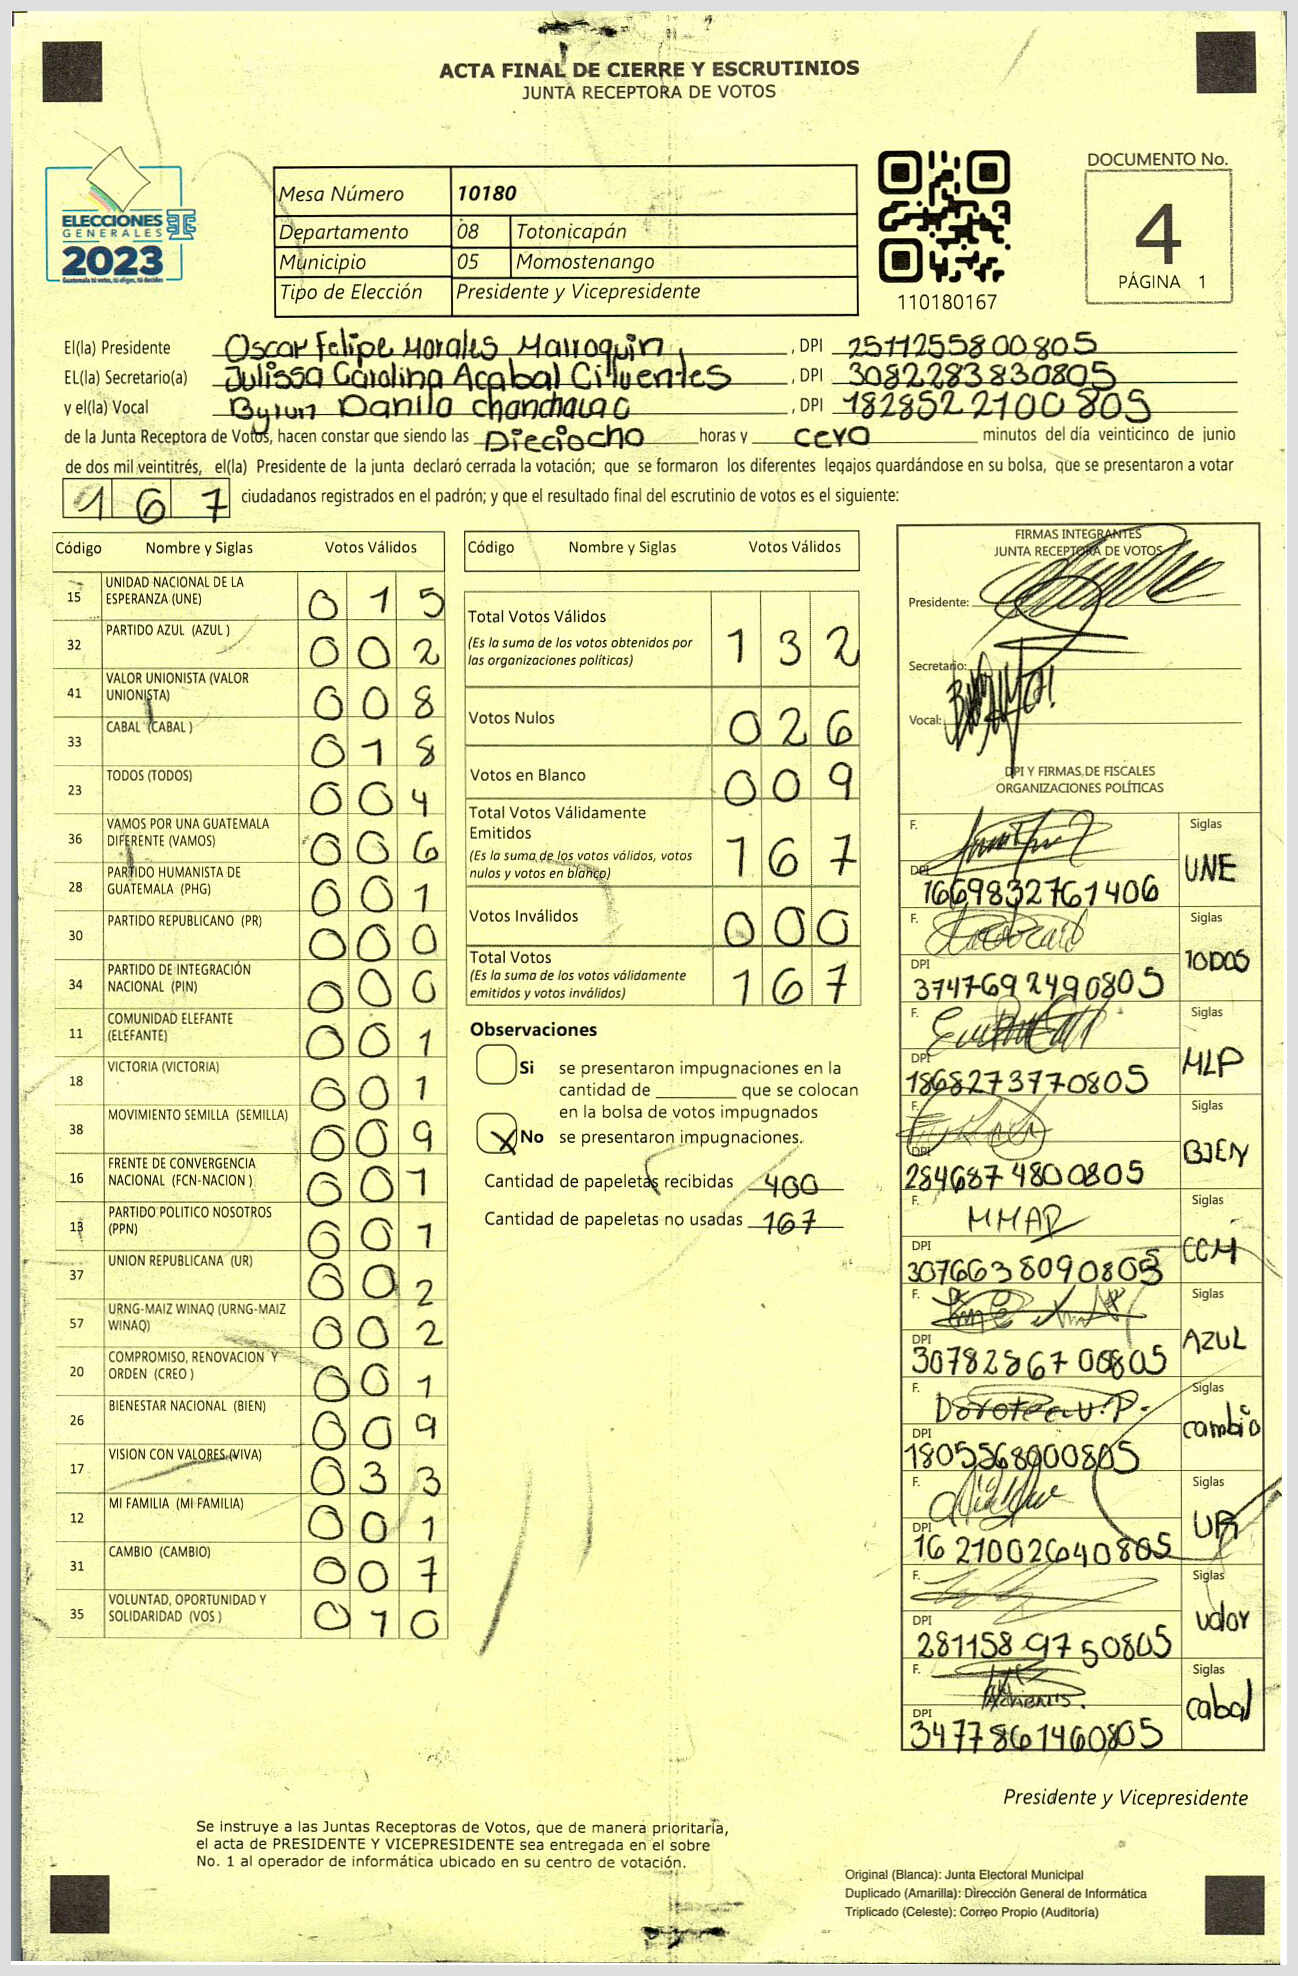 ACTA FINAL DE CIERRE Y ESCRUTINIOS
JUNTA RECEPTORA DE VOTOS
ELECCIONES
GENERALES
2023
Guatemala tú votas, tú eliges, tú decides
Mesa Número 10180
Departamento 08 Totonicapán
Municipio 05 Momostenango
Tipo de Elección Presidente y Vicepresidente
110180167
DOCUMENTO No.
4
PÁGINA 1
El(la) Presidente Oscar Felipe Morales Marroquin , DPI 2511255800805
EL(la) Secretario(a) Julissa Carolina Acabal Cifuentes , DPI 3082283830805
y el(la) Vocal Byron Danilo , DPI 1828522100805
de la Junta Receptora de Votos, hacen constar que siendo las Dieciocho horas y cero minutos del día veinticinco de junio
de dos mil veintitrés, el(la) Presidente de la junta declaró cerrada la votación; que se formaron los diferentes legajos guardándose en su bolsa, que se presentaron a votar
167 ciudadanos registrados en el padrón; y que el resultado final del escrutinio de votos es el siguiente:
Código Nombre y Siglas Votos Válidos
15 UNIDAD NACIONAL DE LA ESPERANZA (UNE) 015
32 PARTIDO AZUL (AZUL ) 002
41 VALOR UNIONISTA (VALOR UNIONISTA) 008
33 CABAL (CABAL ) 018
23 TODOS (TODOS) 004
36 VAMOS POR UNA GUATEMALA DIFERENTE (VAMOS) 006
28 PARTIDO HUMANISTA DE GUATEMALA (PHG) 001
30 PARTIDO REPUBLICANO (PR) 000
34 PARTIDO DE INTEGRACIÓN NACIONAL (PIN) 000
11 COMUNIDAD ELEFANTE (ELEFANTE) 001
18 VICTORIA (VICTORIA) 001
38 MOVIMIENTO SEMILLA (SEMILLA) 009
16 FRENTE DE CONVERGENCIA NACIONAL (FCN-NACION ) 001
13 PARTIDO POLITICO NOSOTROS (PPN) 001
37 UNION REPUBLICANA (UR) 002
57 URNG-MAIZ WINAQ (URNG-MAIZ WINAQ) 002
20 COMPROMISO, RENOVACION Y ORDEN (CREO ) 001
26 BIENESTAR NACIONAL (BIEN) 009
17 VISION CON VALORES (VIVA) 033
12 MI FAMILIA (MI FAMILIA) 001
31 CAMBIO (CAMBIO) 007
35 VOLUNTAD, OPORTUNIDAD Y SOLIDARIDAD (VOS ) 010
Código Nombre y Siglas Votos Válidos
Total Votos Válidos 132
(Es la suma de los votos obtenidos por las organizaciones políticas)
Votos Nulos 026
Votos en Blanco 009
Total Votos Válidamente Emitidos 167
(Es la suma de los votos válidos, votos nulos y votos en blanco)
Votos Inválidos 000
Total Votos 167
(Es la suma de los votos válidamente emitidos y votos inválidos)
Observaciones
Si se presentaron impugnaciones en la
cantidad de ________ que se colocan
en la bolsa de votos impugnados
X No se presentaron impugnaciones.
Cantidad de papeletas recibidas 400
Cantidad de papeletas no usadas 167
FIRMAS INTEGRANTES
JUNTA RECEPTORA DE VOTOS
Presidente:
Secretario:
Vocal:
DPI Y FIRMAS DE FISCALES
ORGANIZACIONES POLÍTICAS
F. Siglas
DPI 1669832761406 UNE
F. Siglas
DPI 3747692490805 TODOS
F. Siglas
DPI 1868273770805 MLP
F. Siglas
DPI 2846874800805 BIEN
F. MMAP Siglas
DPI 3076638090805 CCM
F. Siglas
DPI 3078286700805 AZUL
F. Dorotea U.P. Siglas
DPI 1805568900805 cambio
F. Siglas
DPI 1621002640805 UR
F. Siglas
DPI 2811589750805 valor
F. Siglas
DPI 3477861460805 cabal
Presidente y Vicepresidente
Se instruye a las Juntas Receptoras de Votos, que de manera prioritaria,
el acta de PRESIDENTE Y VICEPRESIDENTE sea entregada en el sobre
No. 1 al operador de informática ubicado en su centro de votación.
Original (Blanca): Junta Electoral Municipal
Duplicado (Amarilla): Dirección General de Informática
Triplicado (Celeste): Correo Propio (Auditoría)